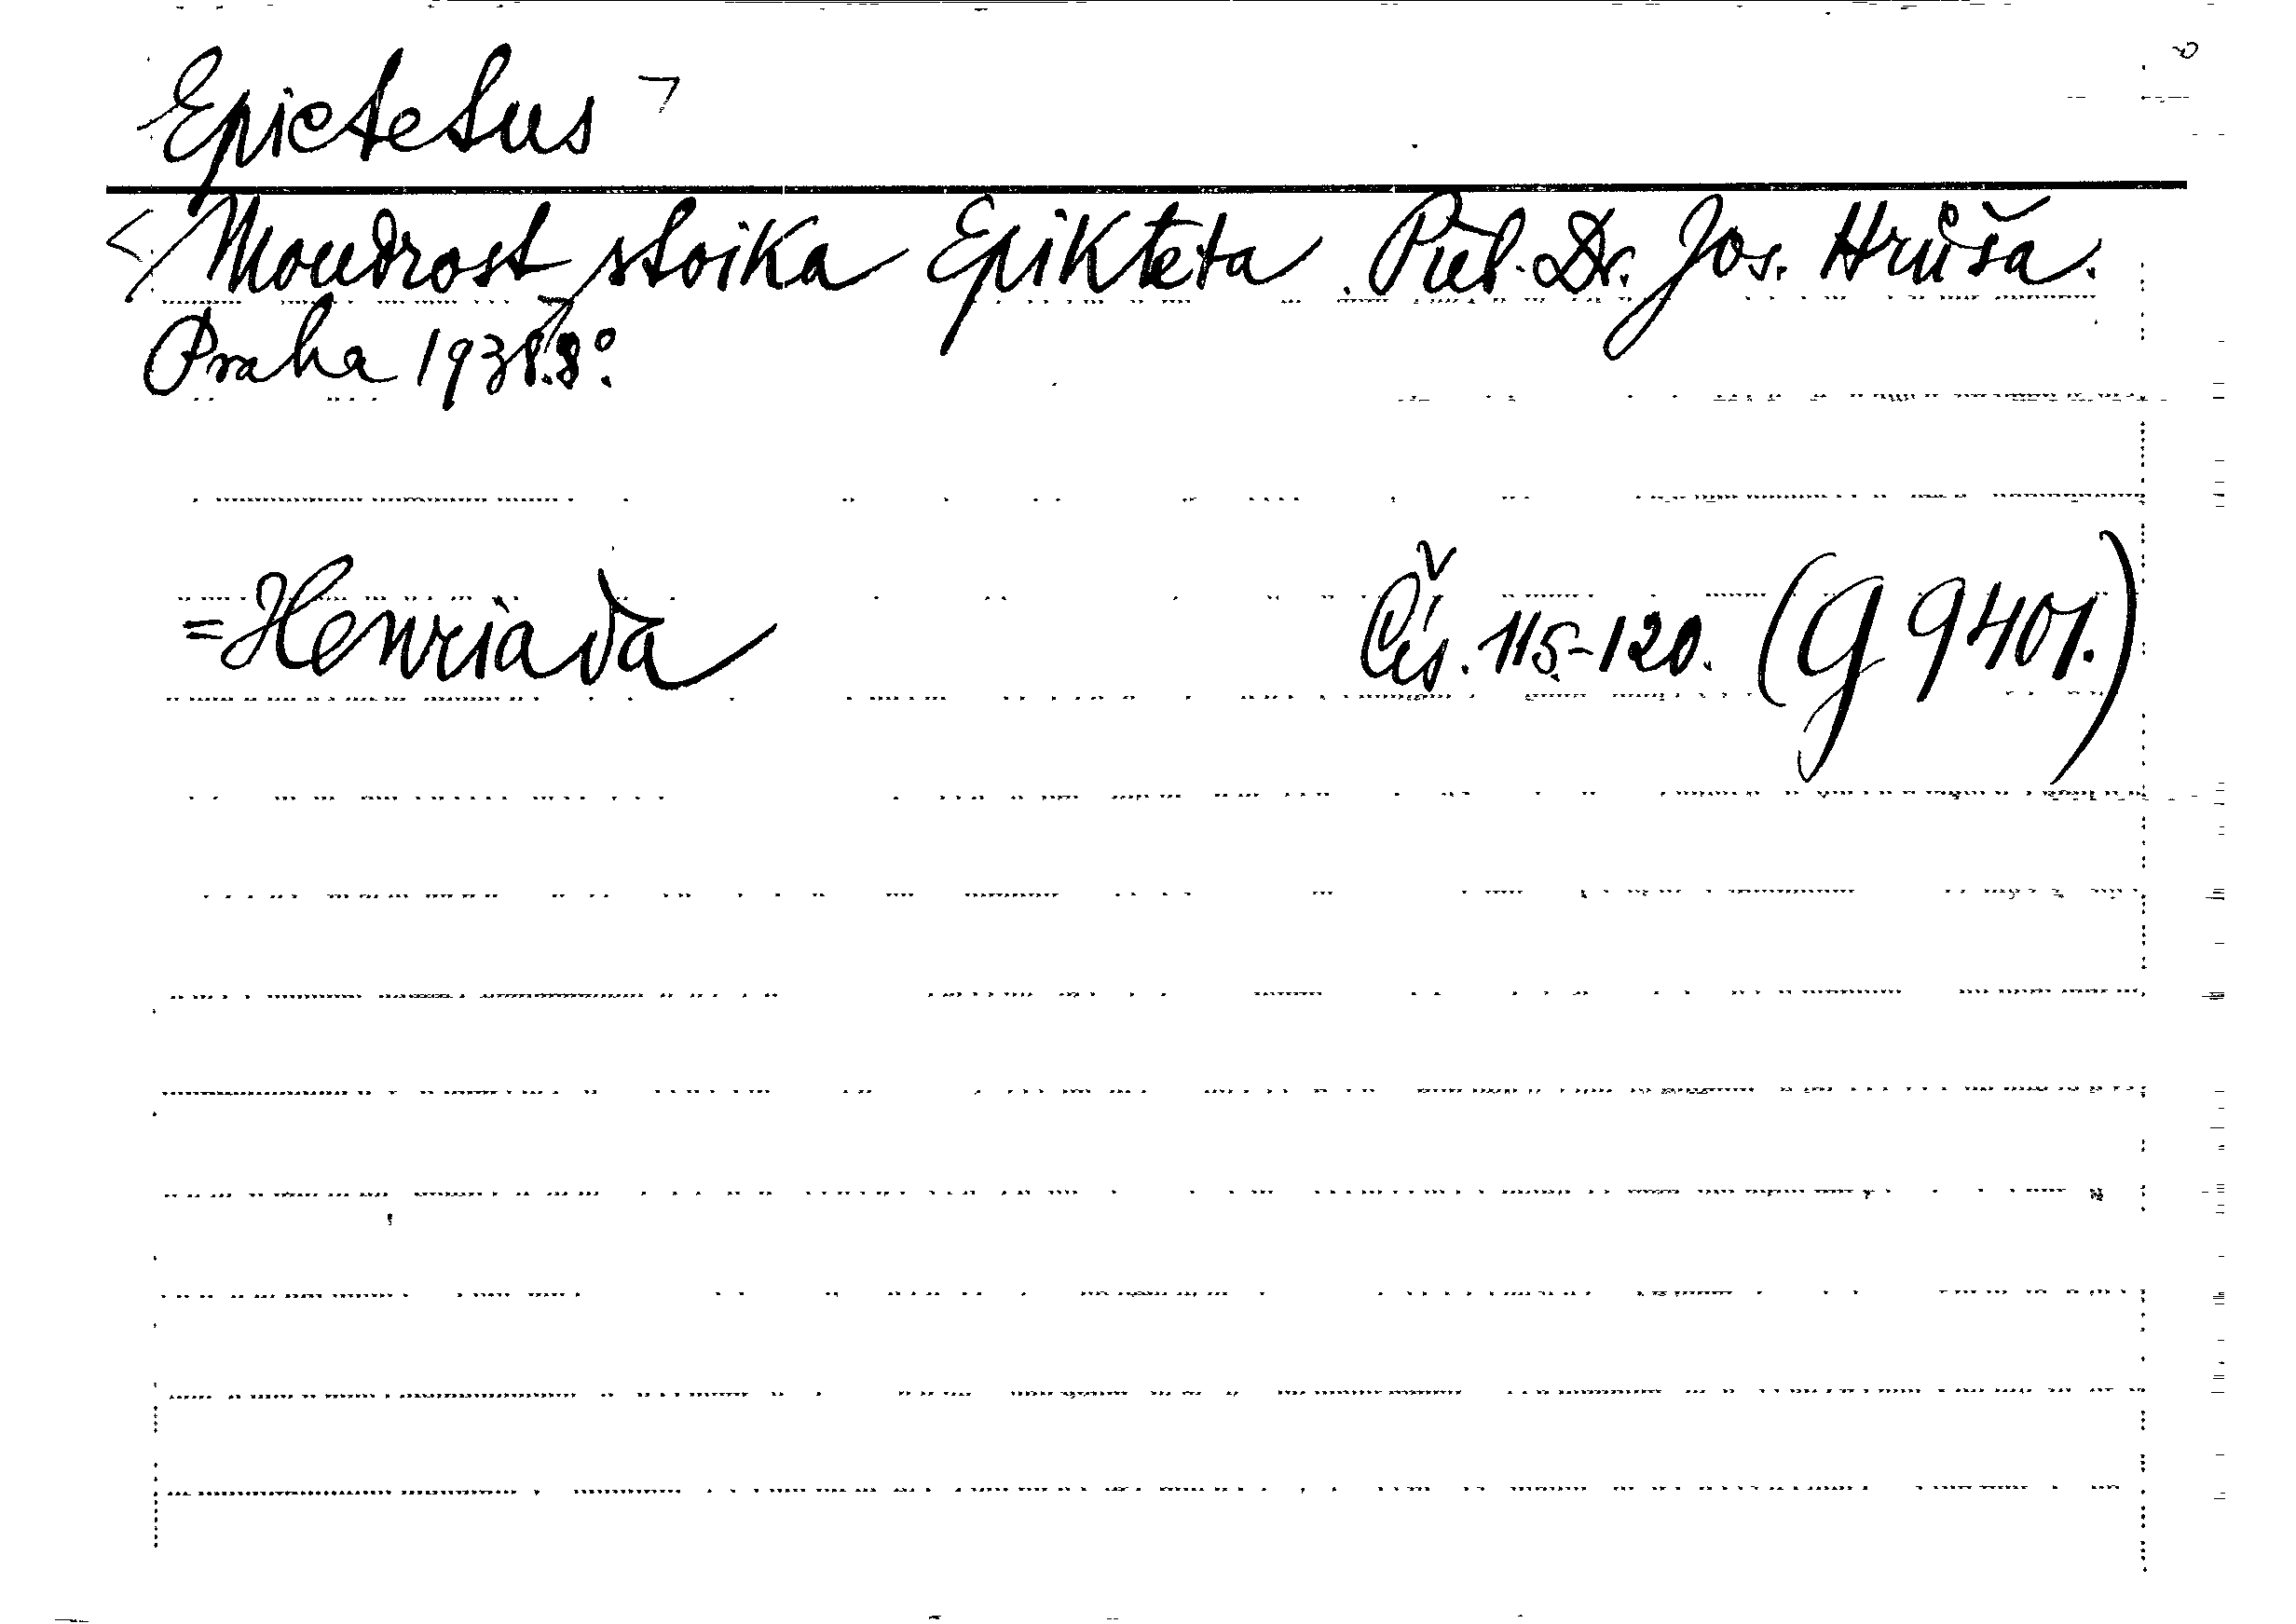 Epictetus
Moudrost stoika Epikteta. Přel. Dr. Jos. Hrůša.
Praha 1938. 8°.
=Henriada Čís. 115.-120. (G 9401.)